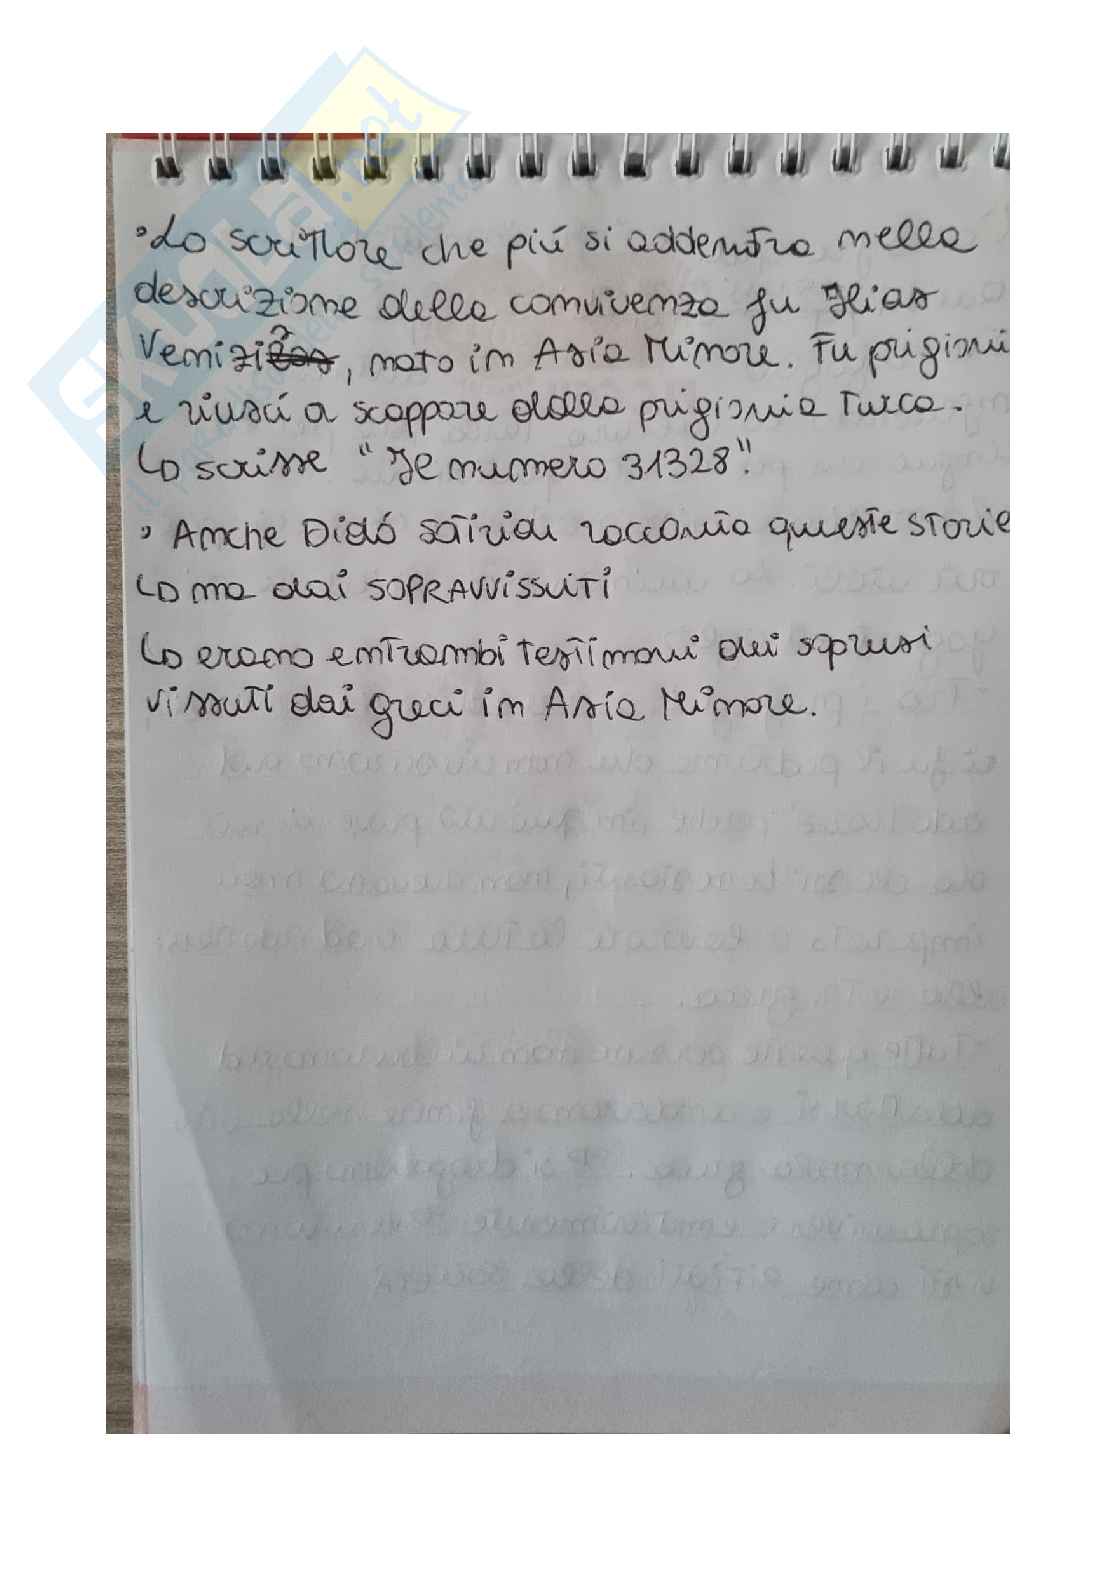 SKUOLA.net
• Lo scrittore che piú si addentra nella
descrizione della convivenza fu Ilias
Venizi, nato in Asia Minore. Fu prigioni
e riuscí a scappare dalla prigionia Turca.
Lo scrisse "Il numero 31328".
• Anche Didó Satiriu racconta queste storie
Lo ma dai SOPRAVVISSUTI
Lo erano entrambi testimoni dei soprusi
vissuti dai greci in Asia Minore.